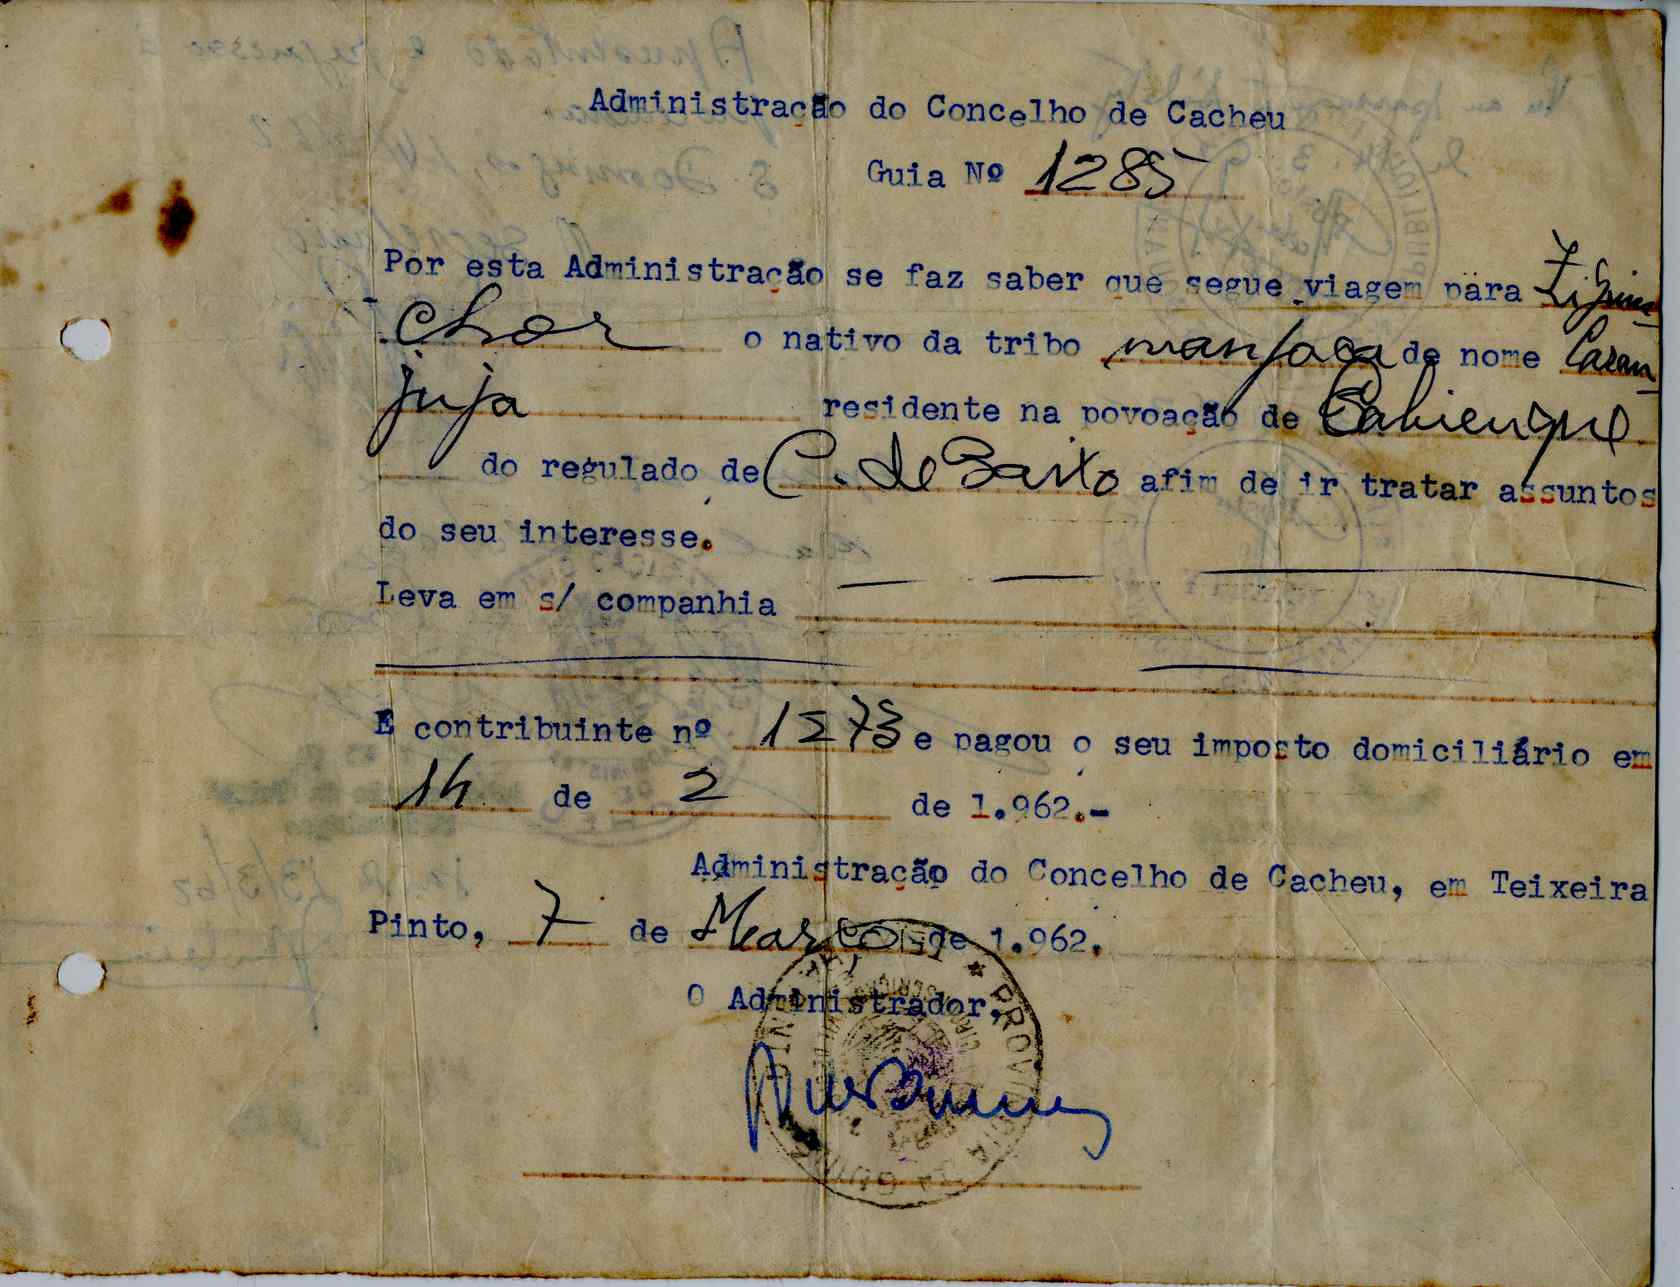 Administração do Concelho de Cacheu
Guia Nº 1285
Por esta Administração se faz saber que segue viagem para Ziguin
chor o nativo da tribo manjaca de nome
juja residente na povoação de
do regulado de C. de Baixo afim de ir tratar assuntos
do seu interesse.
Leva em s/ companhia
É contribuinte nº 1273 e pagou o seu imposto domiciliário em
14 de 2 de 1.962.-
Administração do Concelho de Cacheu, em Teixeira
Pinto, 7 de Março de 1.962.
O Administrador,
PROVINCIA DA GUINÉ